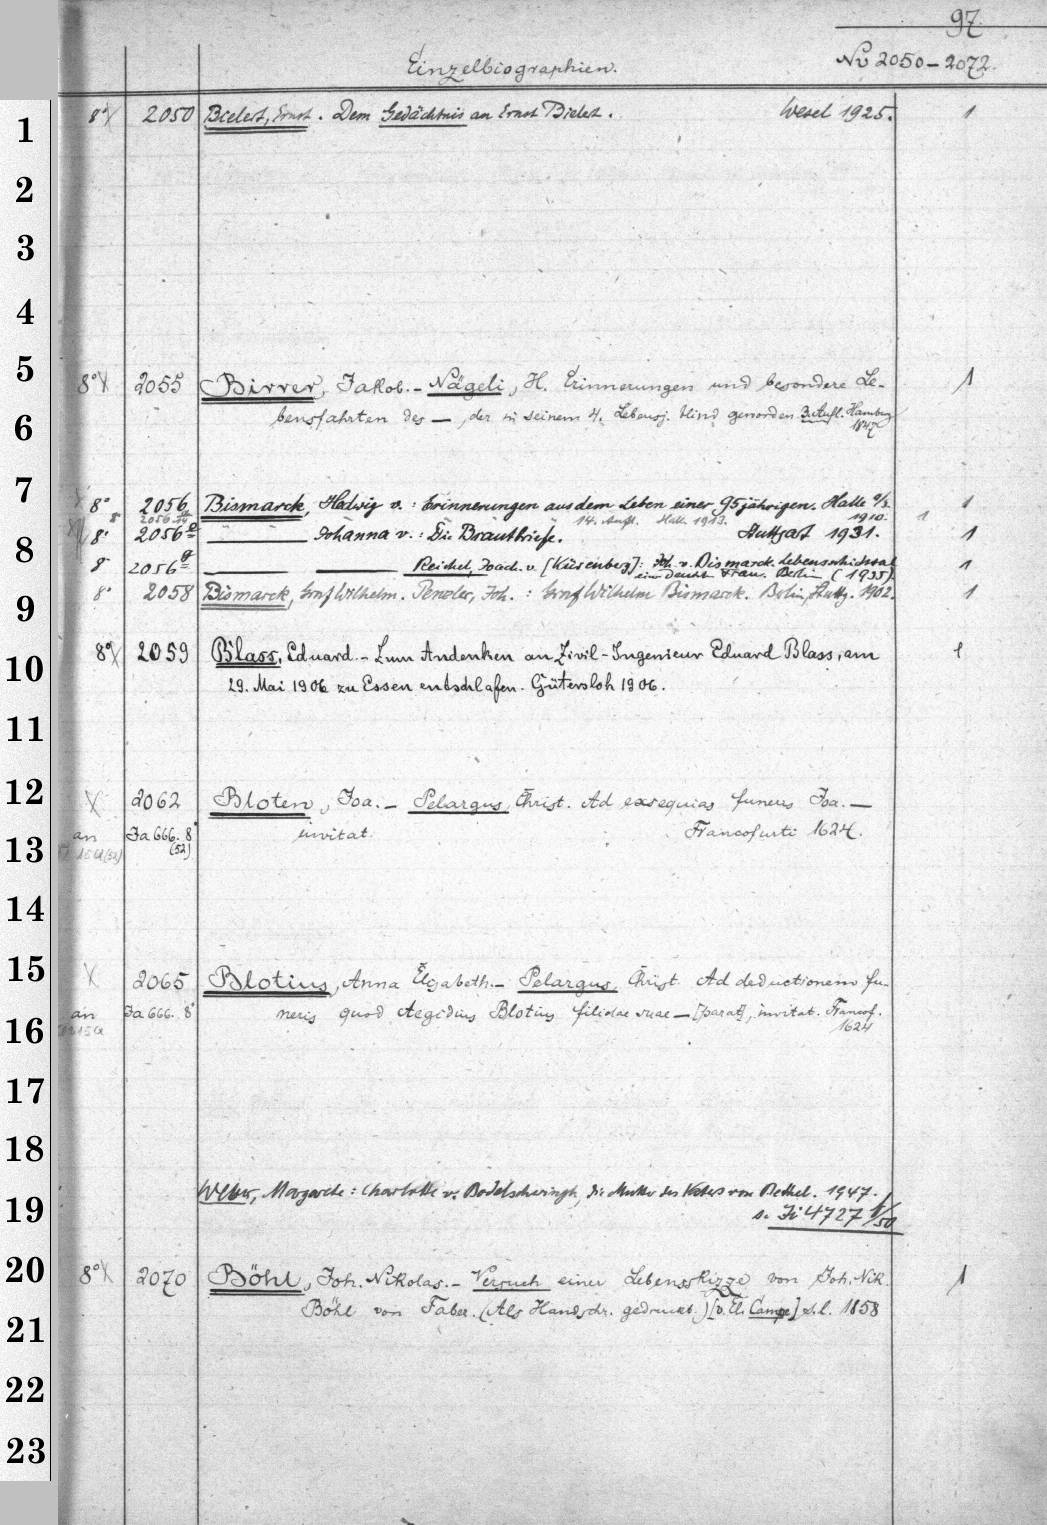 97.
Einzelbiographien.
No 2050-2072.
1
8° 2050 Bielert, Ernst. Dem Gedächtnis an Ernst Bielert. Wesel 1925. 1
2
3
4
5
8° 2055 Birrer, Jakob. - Nägeli, H. Erinnerungen und besondere Le- 1
6
bensfahrten des —, der in seinem 4. Lebensj. blind geworden. 3. Aufl. Hamburg
1847
7
8° 2056 Bismarck, Hedwig v.: Erinnerungen aus dem Leben einer 95jährigen. Halle 1910. 1
14. Aufl. Halle 1913. 1
8
8° 2056 e — Johanna v.: Die Brautbriefe. Stuttgart 1931. 1
8° 2056 g — — Reichel, Joach. v. [Kürenberg]: Joh. v. Bismarck. Lebensschicksal 1
einer Deutsch. Frau. Berlin (1935)
9
8° 2058 Bismarck, Graf Wilhelm. Penzler, Joh.: Graf Wilhelm Bismarck. Berlin, Stuttg. 1902. 1
10
8° 2059 Blass, Eduard. - Zum Andenken an Zivil-Ingenieur Eduard Blass, am 1
29. Mai 1906 zu Essen entschlafen. Gütersloh 1906.
11
12
2062 Bloten, Joa. - Pelargus, Christ. Ad exsequias funeris Joa. —
13
an Ja 666. 8° (52) invitat. Francofurti 1624.
14
15
2065 Blotius, Anna Elisabeth. - Pelargus, Christ. Ad deductionem fu-
16
an Ja 666. 8° neris quod Aegidius Blotius filiolae suae — [parat], invitat. Francof.
1624
17
18
Weber, Margarete: Charlotte v. Bodelschwingh, die Mutter des Vaters von Bethel. 1947.
19
s. Ji 4727 1/50
20
8° 2070 Böhl, Joh. Nikolas. - Versuch einer Lebensskizze von Joh. Nik. 1
21
Böhl von Faber. (Als Handschr. gedruckt.) [v. El. Campe] s.l. 1858
22
23